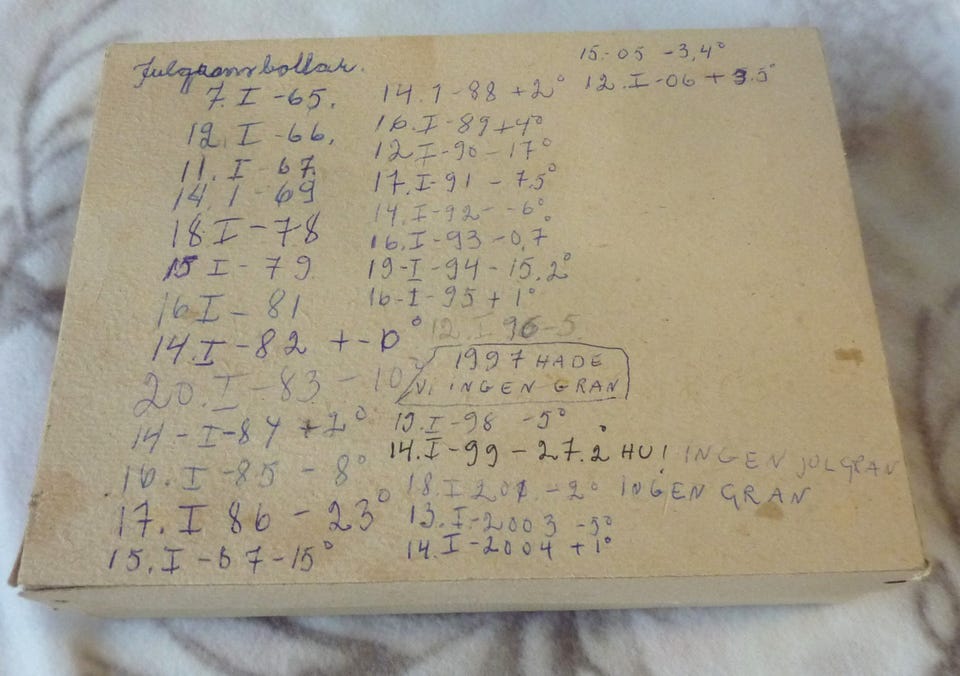 Julgransbollar.
7. I -65.
12. I -66.
11. I -67.
14. I -69
18. I -78
15 I -79
16 I -81
14. I -82 +-0°
20. I -83 -10°
14 - I -84 +2°
16. I -85 - 8°
17. I 86 - 23°
15. I -87 -15°
14. 1 -88 +2°
16. I -89 +4°
12 I -90 -17°
17. I -91 - 7.5°
14. I -92 - -6°
16. I -93 -0,7
19 - I -94 -15.2°
16 - I -95 + 1°
12. I 96 -5.
1997 HADE
VI INGEN GRAN
13. I -98 -5°
14. I -99 -27.2° HU! INGEN JULGRAN
18. I 201. -2° INGEN GRAN
13. I -2003 -5°
14. I -2004 +1°
15.-05 -3,4°
12. I -06 +3.5°